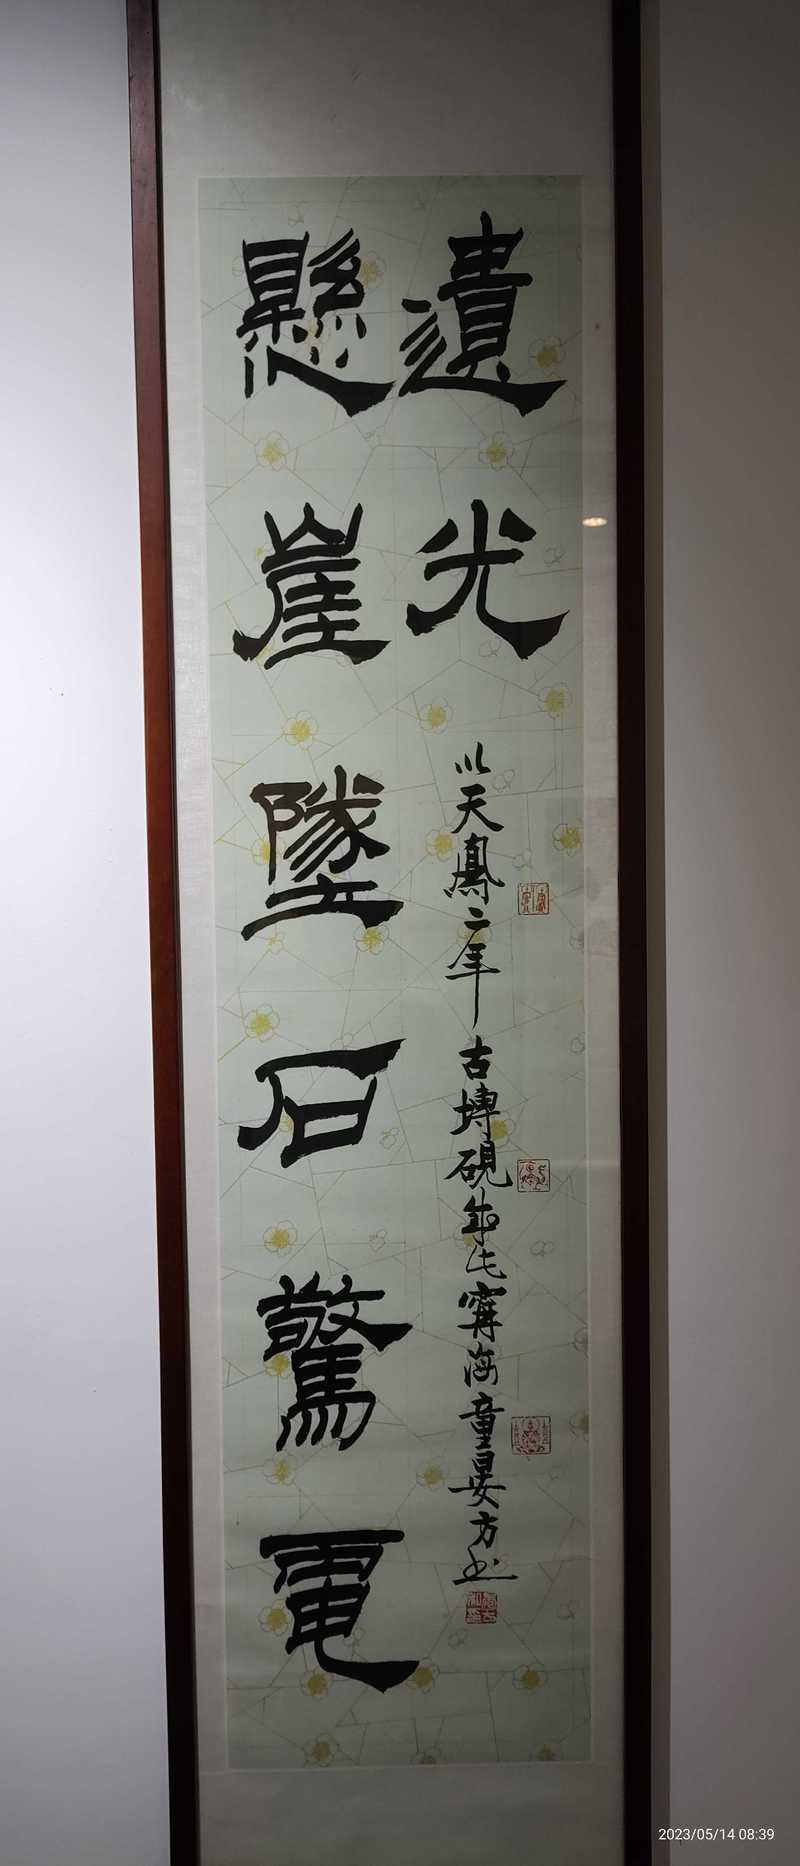 懸崖墜石驚電
遺光
以天鳳二年古塼硯此寧海童晏方書
2023/05/14 08:39